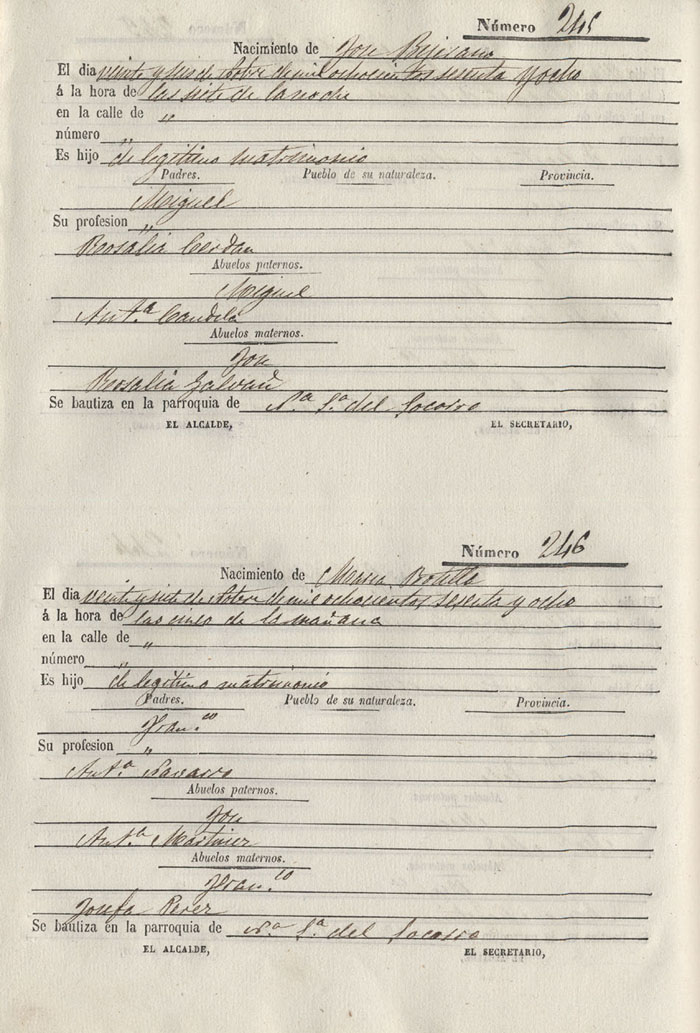 Número 245
Nacimiento de Jose Bejerano
El dia veinte y seis de Obre de mil ochocientos sesenta y ocho
á la hora de las siete de la noche
en la calle de "
número "
Es hijo de legitimo matrimonio
Padres. Pueblo de su naturaleza. Provincia.
Miguel
Su profesion "
Rosalia Cerdan
Abuelos paternos.
Miguel
Ant.ª Candela
Abuelos maternos.
Jose
Rosalia Galvañ
Se bautiza en la parroquia de N.ª S.ª del Socorro
EL ALCALDE, EL SECRETARIO,
Número 246
Nacimiento de Maria Botella
El dia veinte y siete de Obre de mil ochocientos sesenta y ocho
á la hora de las cinco de la mañana
en la calle de "
número "
Es hijo de legitimo matrimonio
Padres. Pueblo de su naturaleza. Provincia.
Fran.co
Su profesion "
Ant.ª Navarro
Abuelos paternos.
Jose
Ant.ª Martinez
Abuelos maternos.
Fran.co
Josefa Perez
Se bautiza en la parroquia de N.ª S.ª del Socorro
EL ALCALDE, EL SECRETARIO,